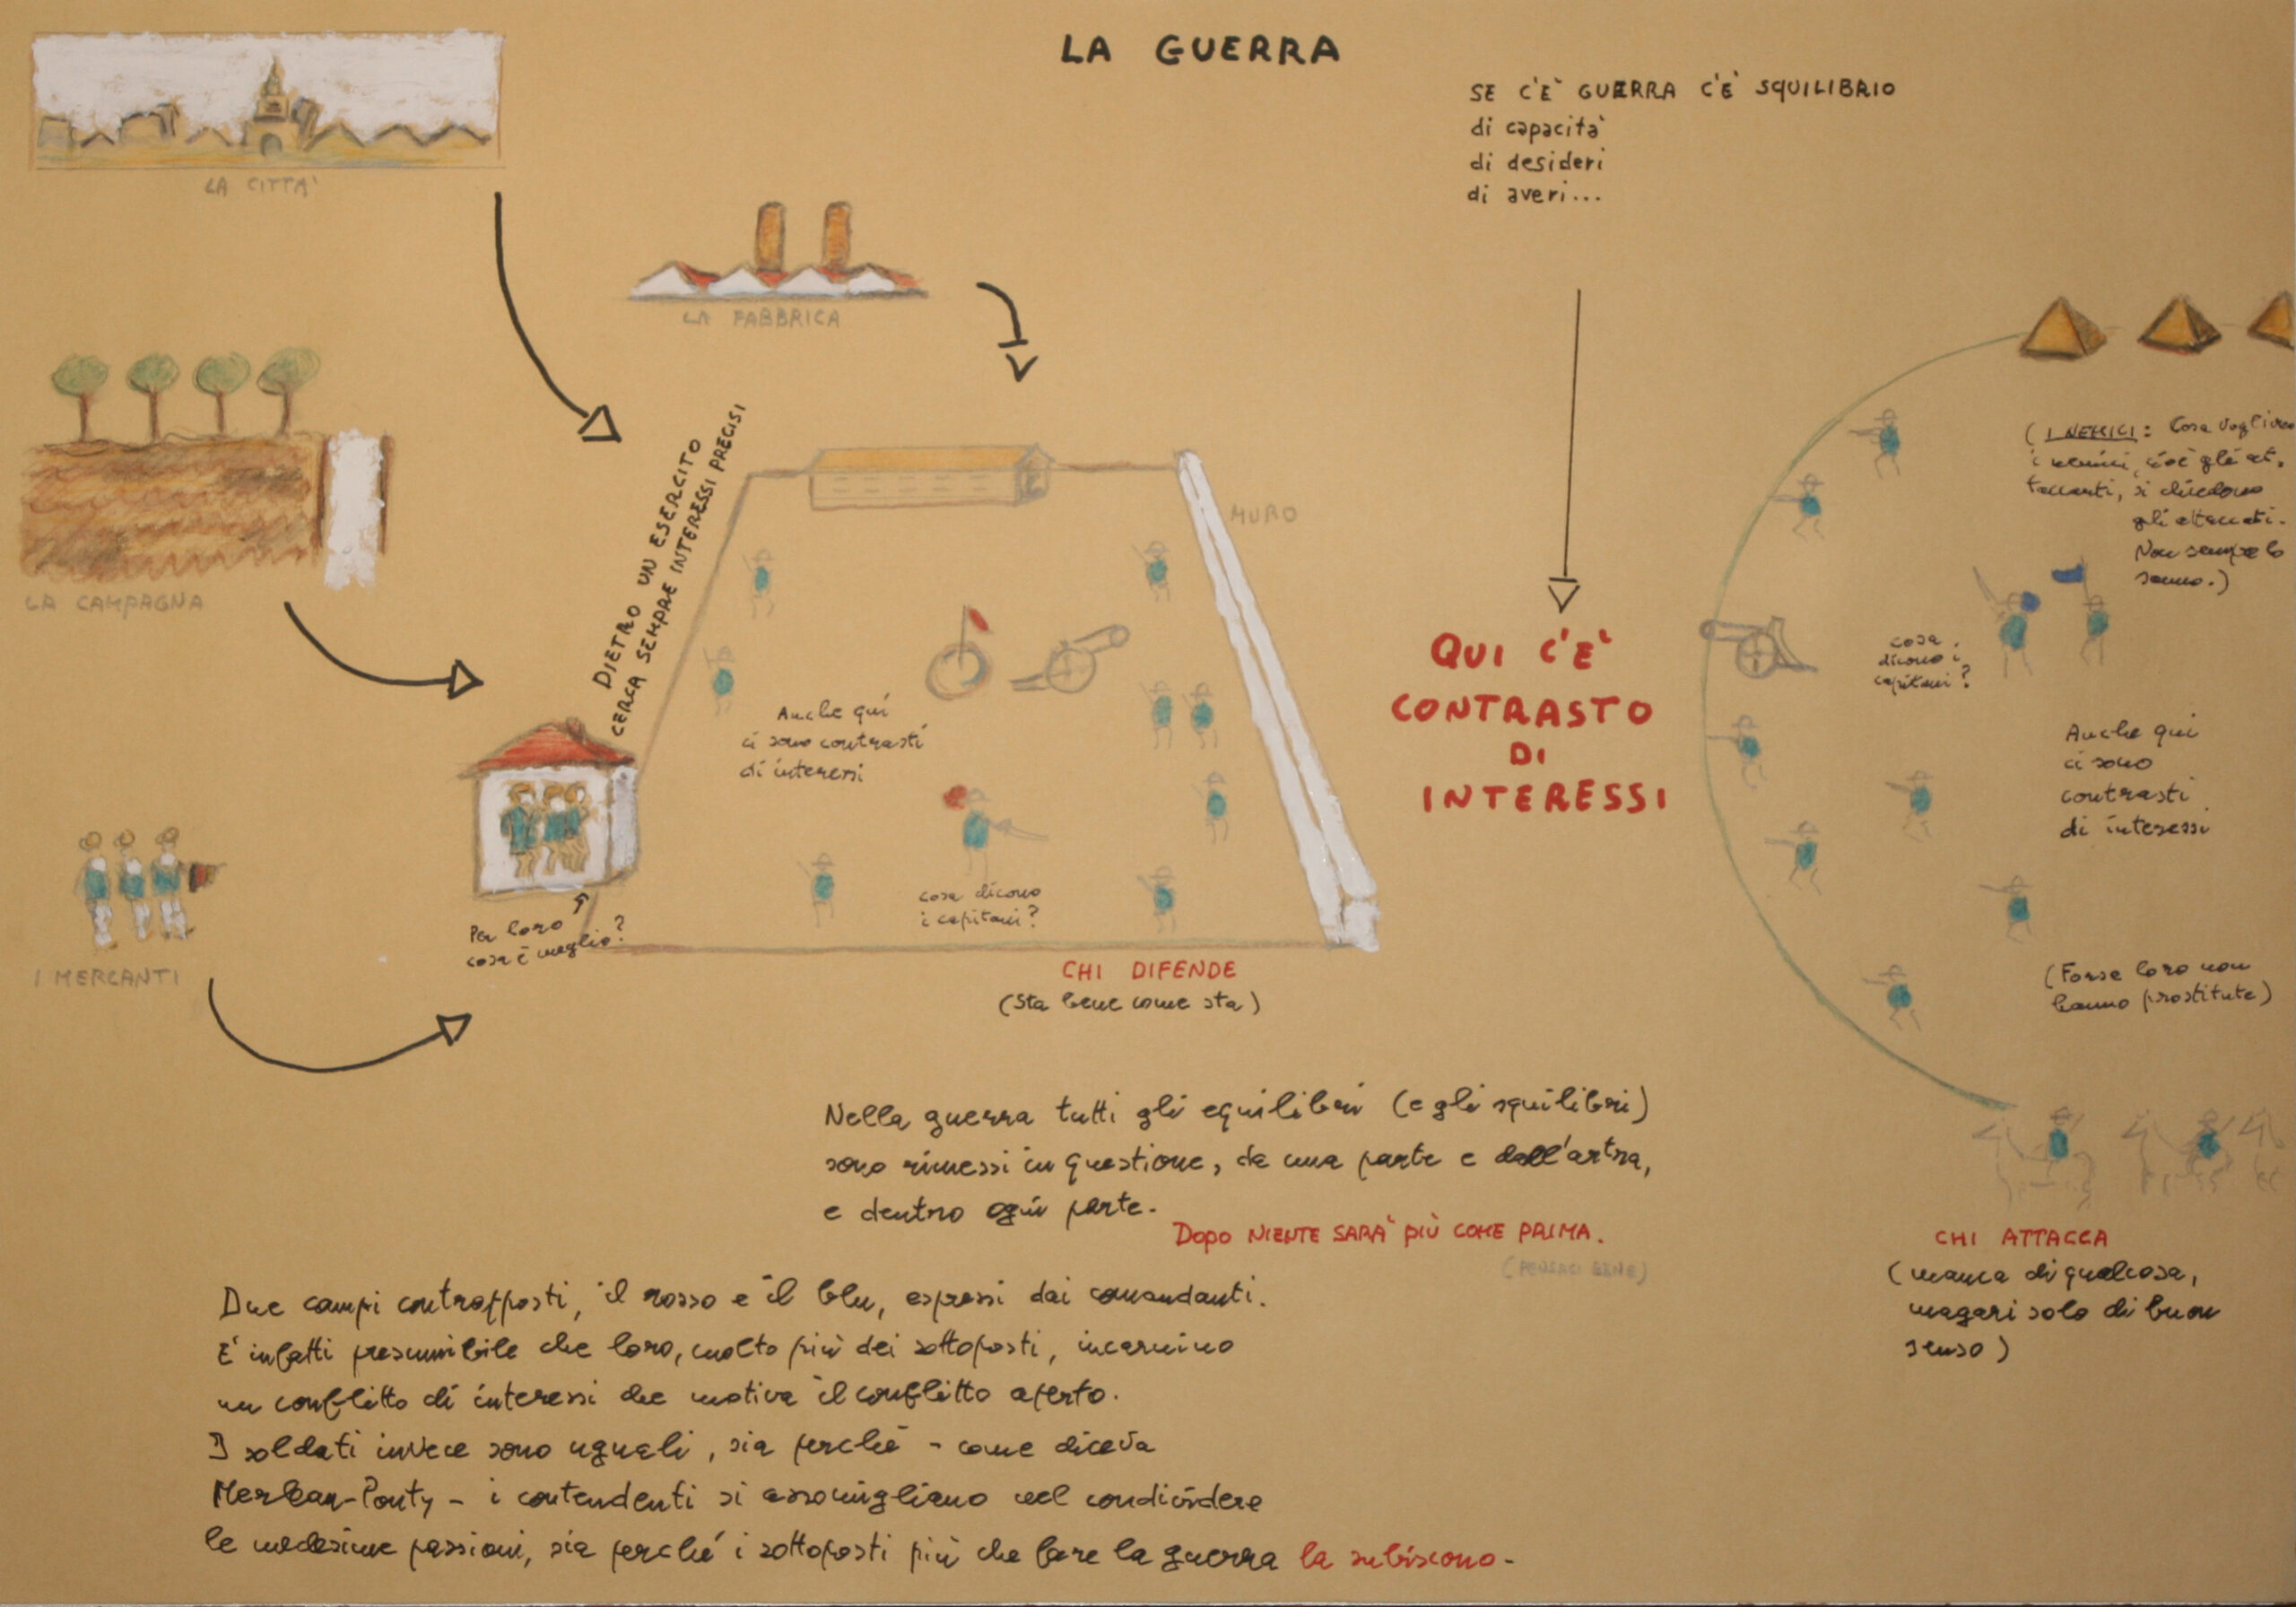 LA GUERRA
SE C'È GUERRA C'È SQUILIBRIO
di capacità
di desideri
di averi...
LA CITTA'
LA FABBRICA
LA CAMPAGNA
I MERCANTI
DIETRO UN ESERCITO
CERCA SEMPRE INTERESSI PRECISI
MURO
Anche qui
ci sono contrasti
di interessi
Per loro
cosa è meglio?
cosa dicono
i capitani?
CHI DIFENDE
(sta bene come sta)
QUI C'È
CONTRASTO
DI
INTERESSI
(I NEMICI: Cosa vogliono
i nemici, cioè gli at-
taccanti, si chiedono
gli attaccati.
Non sempre lo
sanno.)
cosa
dicono i
capitani?
Anche qui
ci sono
contrasti
di interessi
(Forse loro non
hanno prostitute)
CHI ATTACCA
(manca di qualcosa,
magari solo di buon
senso)
Nella guerra tutti gli equilibri (e gli squilibri)
sono rimessi in questione, da una parte e dall'artra,
e dentro ogni parte.
Dopo NIENTE SARA' PIÙ COME PRIMA.
(PENSACI BENE)
Due campi contrapposti, il rosso e il blu, espressi dai comandanti.
E' infatti presumibile che loro, molto più dei sottoposti, incarnino
un conflitto di interessi che motiva il conflitto aperto.
I soldati invece sono uguali, sia perché - come diceva
Merleau-Ponty - i contendenti si assomigliano nel condividere
le medesime passioni, sia perché i sottoposti più che fare la guerra la subiscono.